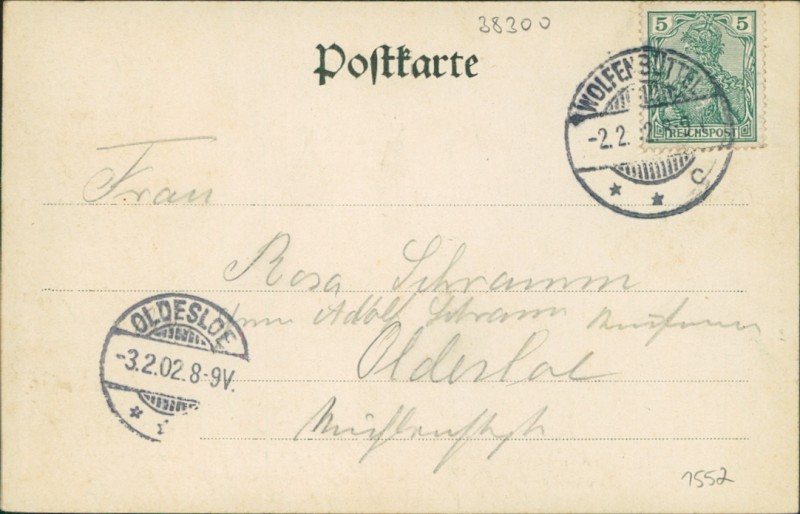 38300
Postkarte
5 5
REICHSPOST
WOLFENBÜTTEL
-2.2.
c
Frau
Rosa Schramm
Adolf Schramm
OLDESLOE
-3.2.02.8-9V.
Oldesloe
1552